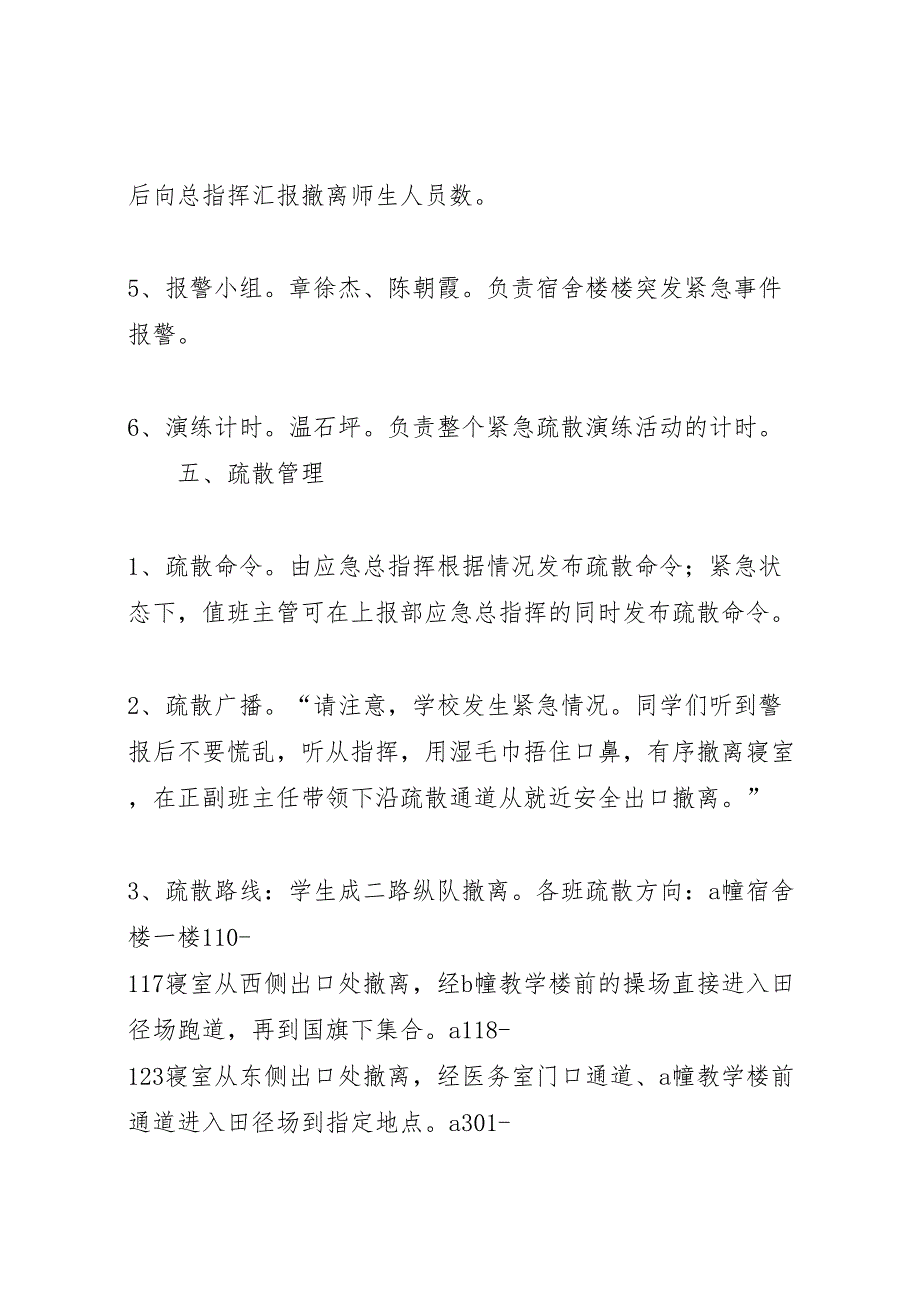 后向总指挥汇报撤离师生人员数。
5、报警小组。章徐杰、陈朝霞。负责宿舍楼楼突发紧急事件
报警。
6、演练计时。温石坪。负责整个紧急疏散演练活动的计时。
五、疏散管理
1、疏散命令。由应急总指挥根据情况发布疏散命令；紧急状
态下，值班主管可在上报部应急总指挥的同时发布疏散命令。
2、疏散广播。“请注意，学校发生紧急情况。同学们听到警
报后不要慌乱，听从指挥，用湿毛巾捂住口鼻，有序撤离寝室
，在正副班主任带领下沿疏散通道从就近安全出口撤离。”
3、疏散路线：学生成二路纵队撤离。各班疏散方向：a幢宿舍
楼一楼110-
117寝室从西侧出口处撤离，经b幢教学楼前的操场直接进入田
径场跑道，再到国旗下集合。a118-
123寝室从东侧出口处撤离，经医务室门口通道、a幢教学楼前
通道进入田径场到指定地点。a301-